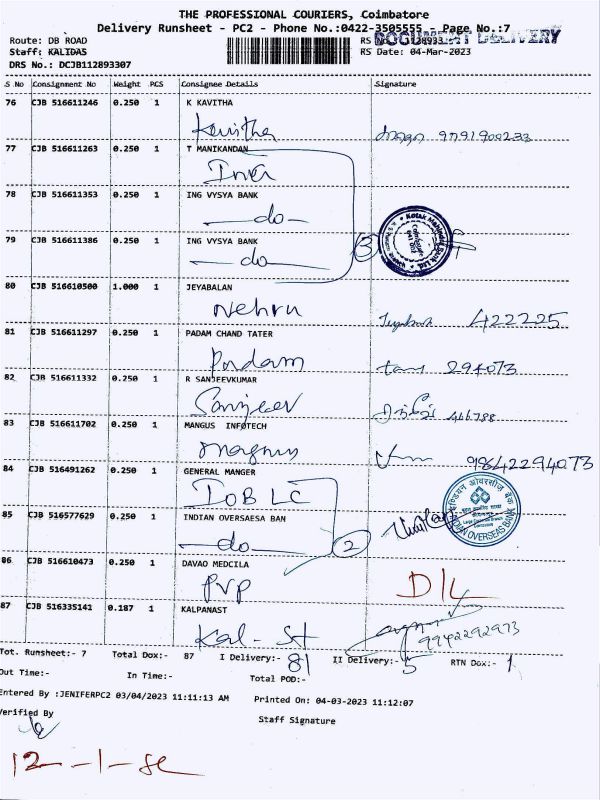 THE PROFESSIONAL COURIERS, Coimbatore
Delivery Runsheet - PC2 - Phone No.:0422-3505555 - Page No.:7
DOCUMENT DELIVERY
Route: DB ROAD
Staff: KALIDAS
RS Date: 04-Mar-2023
DRS No.: DCJB112893307
S No Consignment No Weight PCS Consignee Details Signature
76 CJB 516611246 0.250 1 K KAVITHA
Kavitha 9791900233
77 CJB 516611263 0.250 1 T MANIKANDAN
78 CJB 516611353 0.250 1 ING VYSYA BANK
do
79 CJB 516611386 0.250 1 ING VYSYA BANK
do 3
80 CJB 516610500 1.000 1 JEYABALAN
Nehru 422225
81 CJB 516611297 0.250 1 PADAM CHAND TATER
Padam 294073
82 CJB 516611332 0.250 1 R SANJEEVKUMAR
Sanjeev 466788
83 CJB 516611702 0.250 1 MANGUS INFOTECH
magnus 9842294073
84 CJB 516491262 0.250 1 GENERAL MANGER
IOB LC
INDIAN OVERSEAS BANK
85 CJB 516577629 0.250 1 INDIAN OVERSAESA BAN
do 2
86 CJB 516610473 0.250 1 DAVAO MEDCILA
PVP D/L
87 CJB 516335141 0.187 1 KALPANAST
Kal - St 9942292973
Tot. Runsheet:- 7 Total Dox:- 87 I Delivery:- 81 II Delivery:- 5 RTN Dox:- 1
Out Time:- In Time:- Total POD:-
Entered By :JENIFERPC2 03/04/2023 11:11:13 AM Printed On: 04-03-2023 11:12:07
Verified By Staff Signature